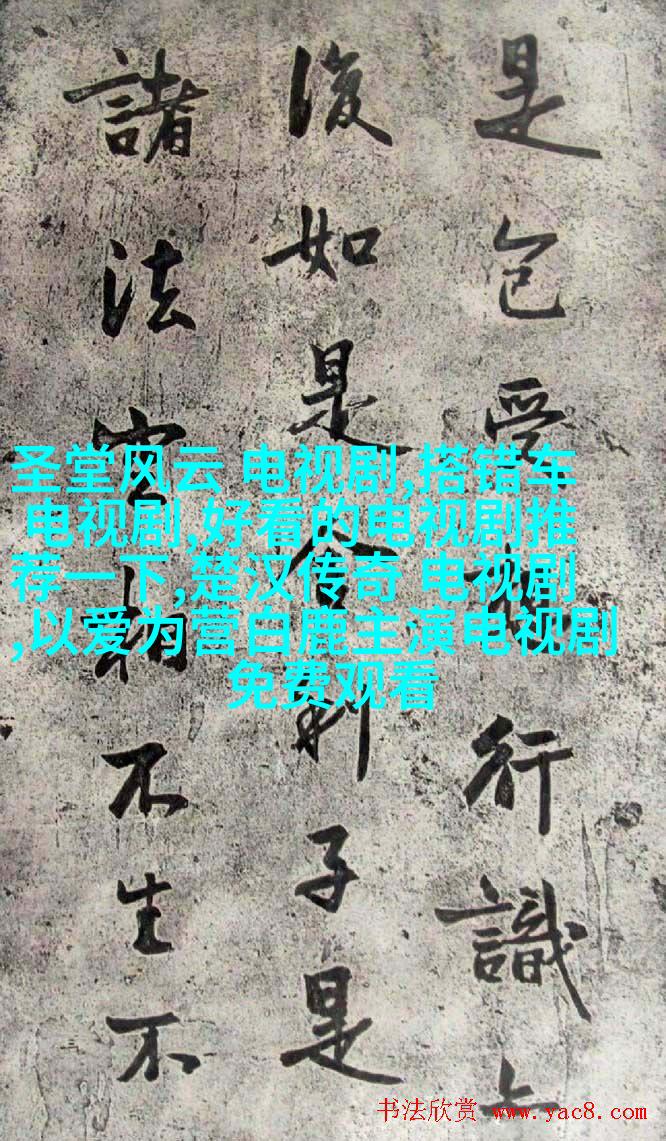 是色受想行識亦
復如是舍利子是
諸法空相不生不
圣堂风云 电视剧,搭错车
电视剧,好看的电视剧推
荐一下,楚汉传奇 电视剧
,以爱为营白鹿主演电视剧
免费观看
书法欣赏 www.yac8.com